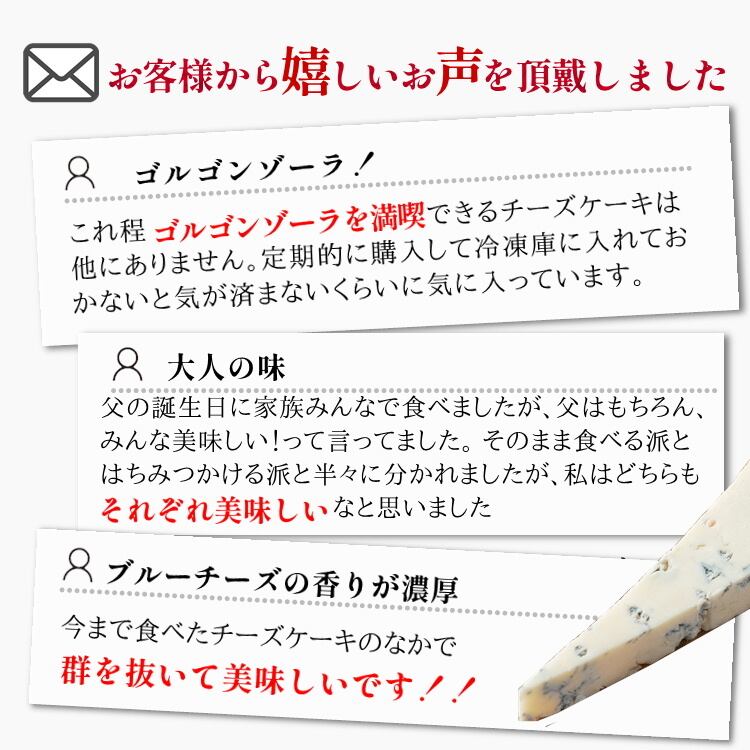 お客様から嬉しいお声を頂戴しました
ゴルゴンゾーラ！
これ程 ゴルゴンゾーラを満喫できるチーズケーキは
他にありません。定期的に購入して冷凍庫に入れてお
かないと気が済まないくらいに気に入っています。
大人の味
父の誕生日に家族みんなで食べましたが、父はもちろん、
みんな美味しい！って言ってました。そのまま食べる派と
はちみつかける派と半々に分かれましたが、私はどちらも
それぞれ美味しいなと思いました
ブルーチーズの香りが濃厚
今まで食べたチーズケーキのなかで
群を抜いて美味しいです！！